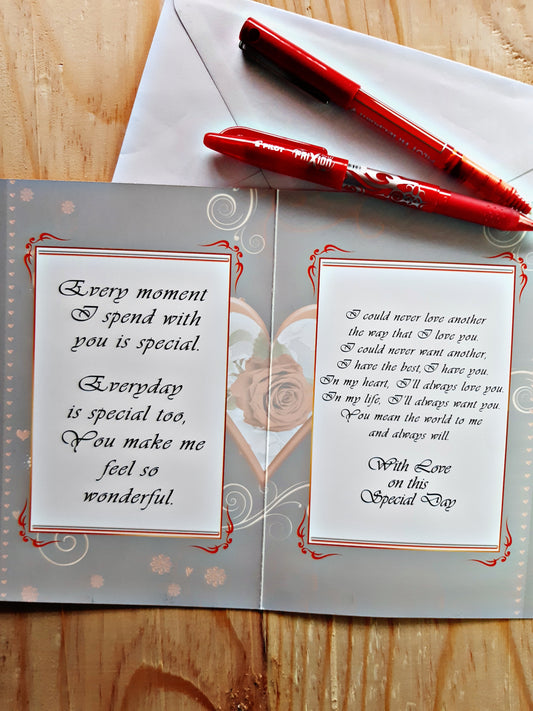 PILOT FRIXION
Every moment
I spend with
you is special.
Everyday
is special too,
You make me
feel so
wonderful.
I could never love another
the way that I love you.
I could never want another,
I have the best, I have you.
In my heart, I'll always love you.
In my life, I'll always want you.
You mean the world to me
and always will.
With Love
on this
Special Day